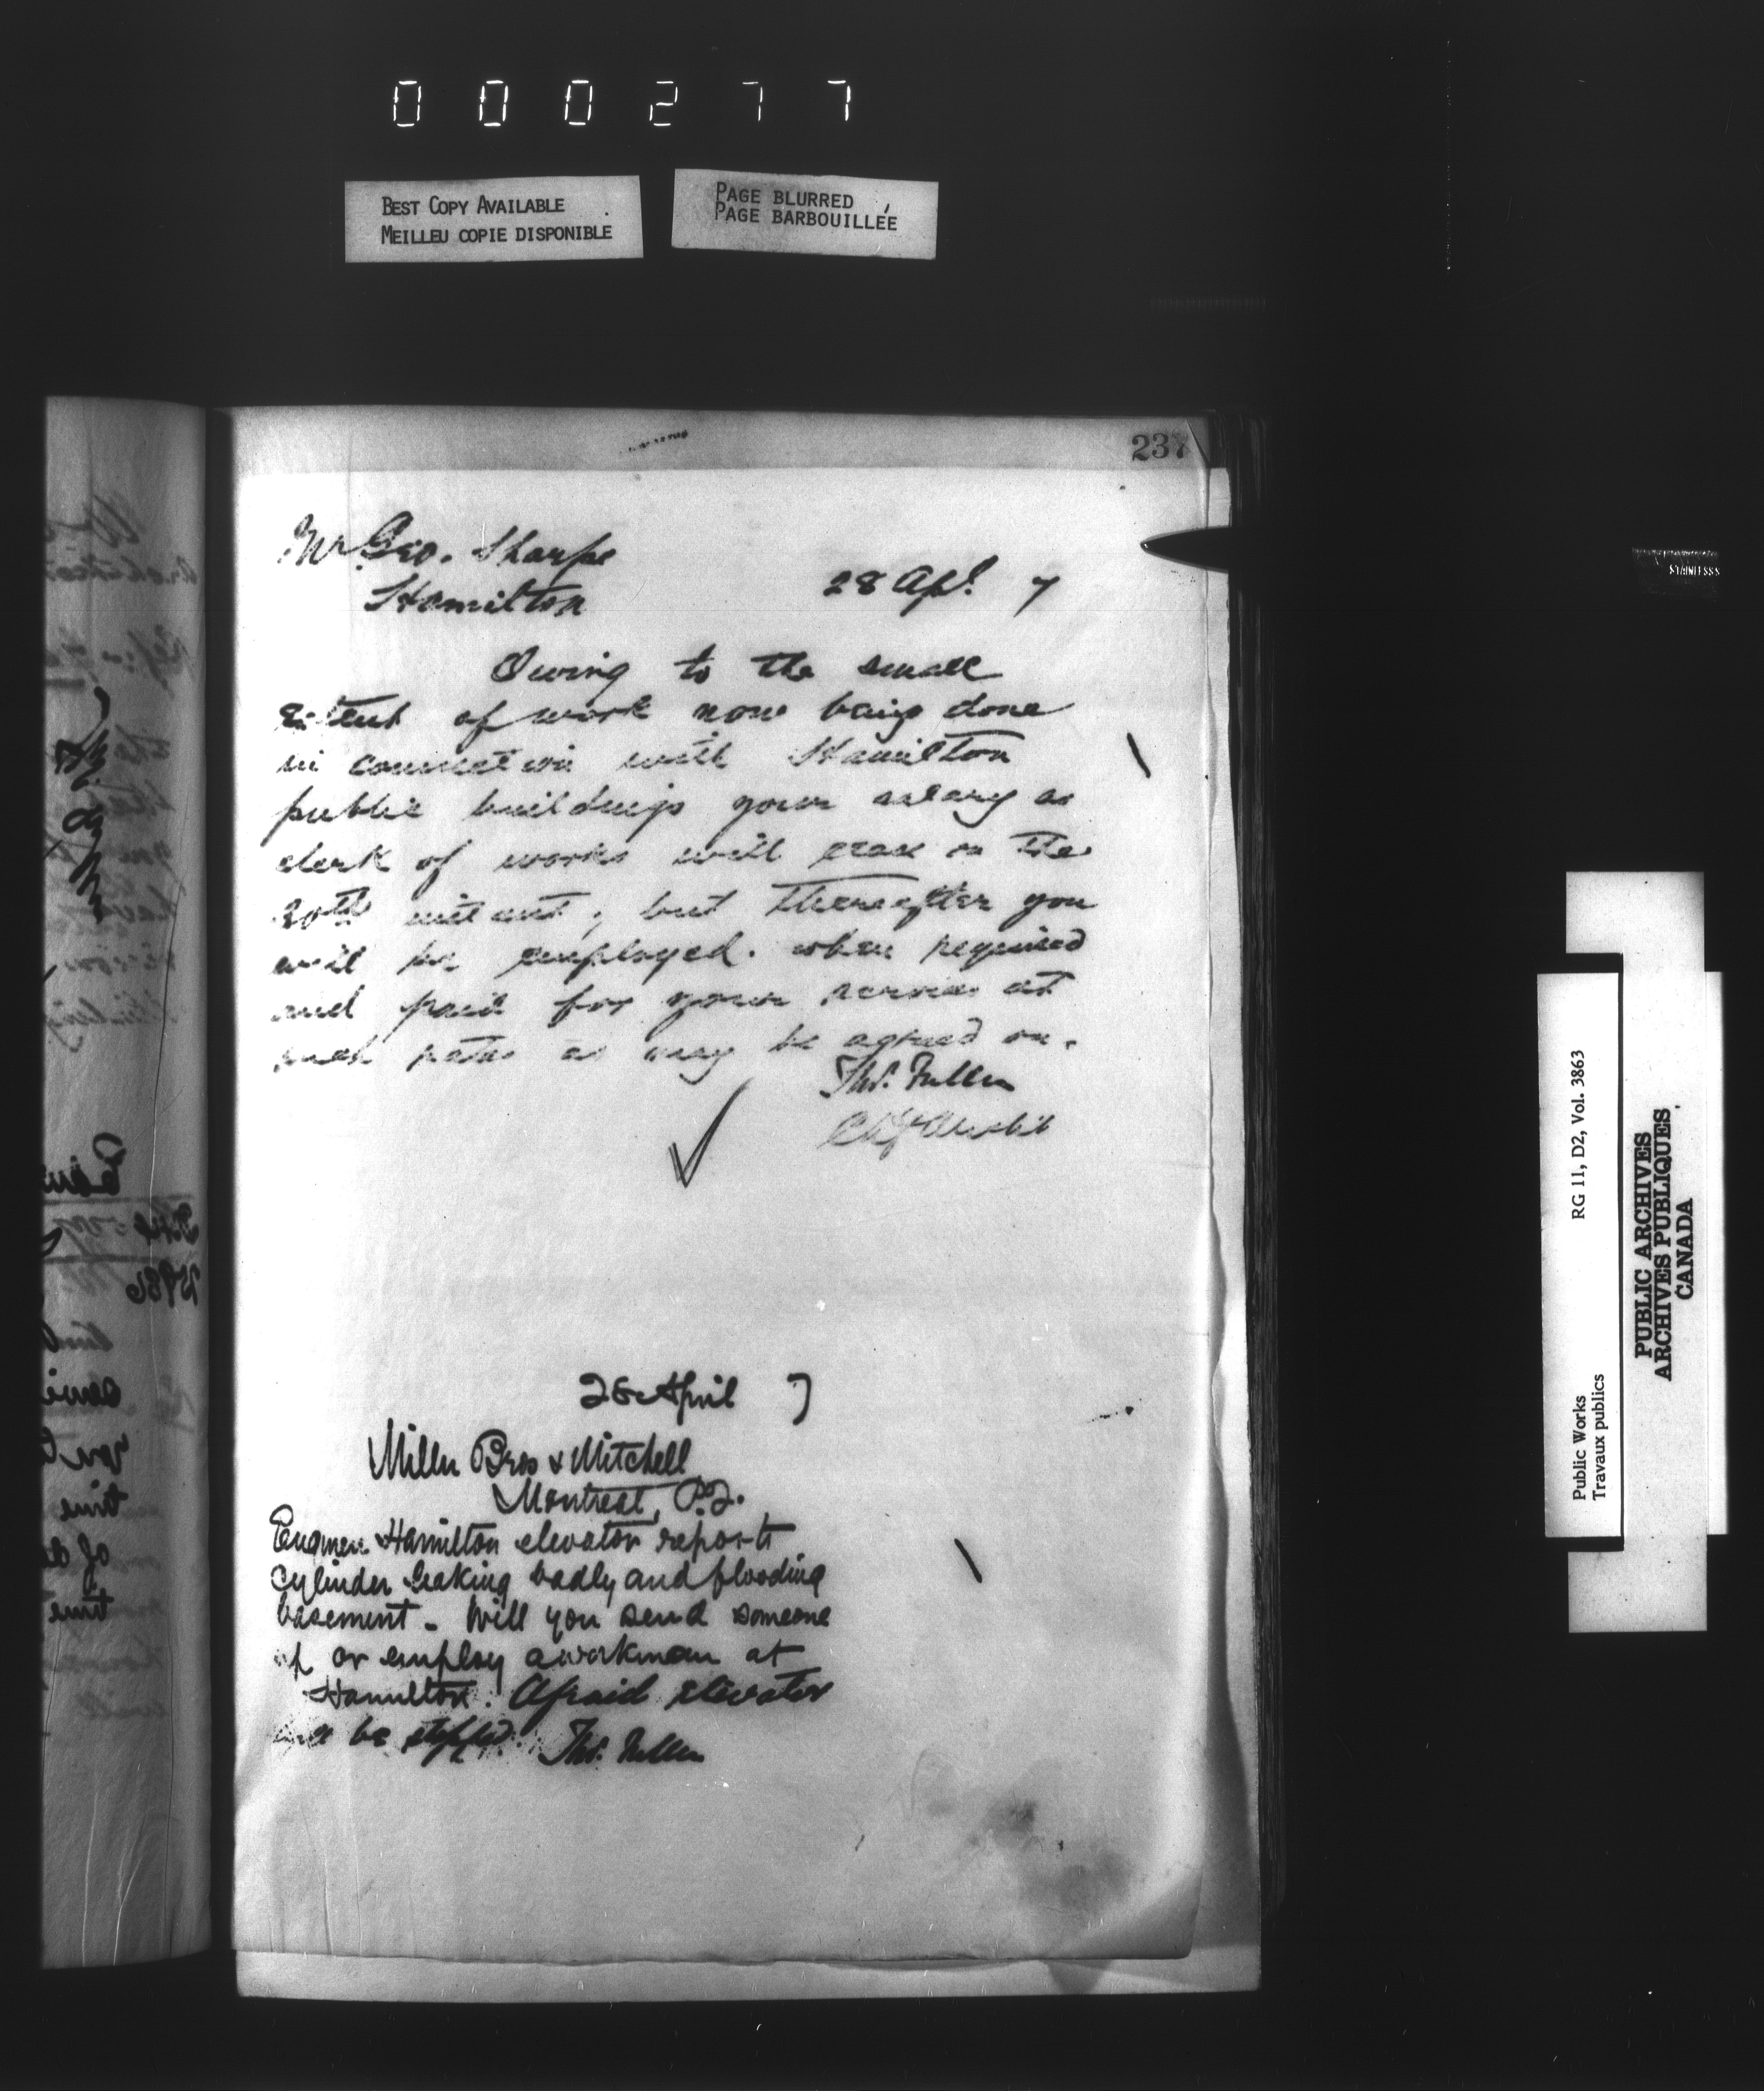 000277
BEST COPY AVAILABLE
MEILLEU COPIE DISPONIBLE
PAGE BLURRED
PAGE BARBOUILLÉE
237
Mr Geo. Sharpe
Hamilton
28 Apl. 7
Owing to the small
extent of work now being done
in connection with Hamilton
public buildings your salary as
clerk of works will cease on the
30th instant, but thereafter you
will be employed. when required
and paid for your services at
such rates as may be agreed on.
Thos. Fuller
Ch. Archit
28 April 7
Miller Bros & Mitchell
Montreal, P.Q.
Engineer Hamilton elevator reports
cylinder leaking badly and flooding
basement - Will you send someone
up or employ a workman at
Hamilton. Afraid elevator
will be stopped. Thos. Fuller
STAINLESS
Public Works
Travaux publics
RG 11, D2, Vol. 3863
PUBLIC ARCHIVES
ARCHIVES PUBLIQUES
CANADA